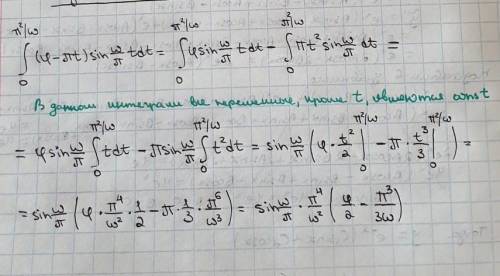 ∫₀^{π²/ω} (φ-πt) sin ω/π t dt = ∫₀^{π²/ω} φ sin ω/π t dt - ∫₀^{π²/ω} πt² sin ω/π dt =
В данном интеграле все переменные, кроме t, являются const
= φ sin ω/π ∫₀^{π²/ω} t dt - π sin ω/π ∫₀^{π²/ω} t² dt = sin ω/π (φ · t²/2 |₀^{π²/ω} - π · t³/3 |₀^{π²/ω}) =
= sin ω/π (φ · π⁴/ω² · 1/2 - π · 1/3 · π⁶/ω³) = sin ω/π · π⁴/ω² (φ/2 - π³/3ω)